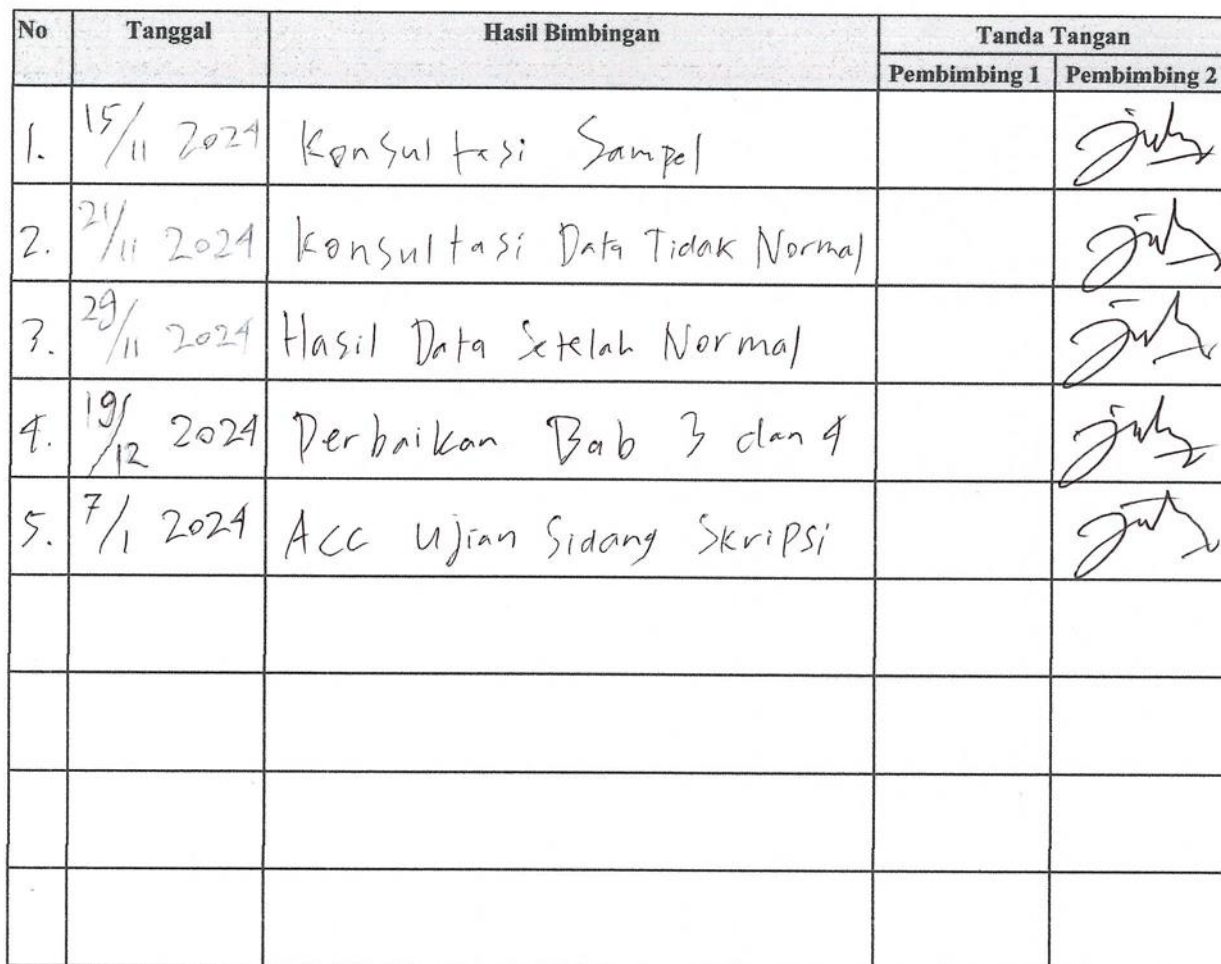 No Tanggal Hasil Bimbingan Tanda Tangan
Pembimbing 1 Pembimbing 2
1. 15/11 2024 Konsultasi Sampel
2. 21/11 2024 Konsultasi Data Tidak Normal
3. 29/11 2024 Hasil Data Setelah Normal
4. 19/12 2024 Perbaikan Bab 3 dan 4
5. 7/1 2024 Acc Ujian Sidang Skripsi